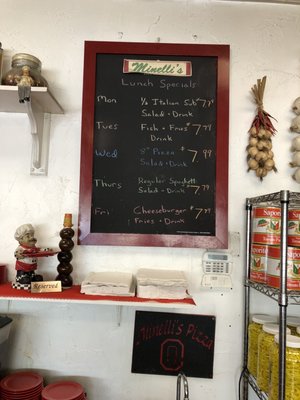 Minelli's
Lunch Specials
Mon 1/2 Italian Sub $7.99
Salad + Drink
Tues Fish + Fries $7.99
Drink
Wed 8" Pizza $7.99
Salad + Drink
Thurs Regular Spaghetti
Salad + Drink $7.99
Fri Cheeseburger $7.99
Fries + Drink
Reserved
Minelli's Pizza
Saporito
Saporito